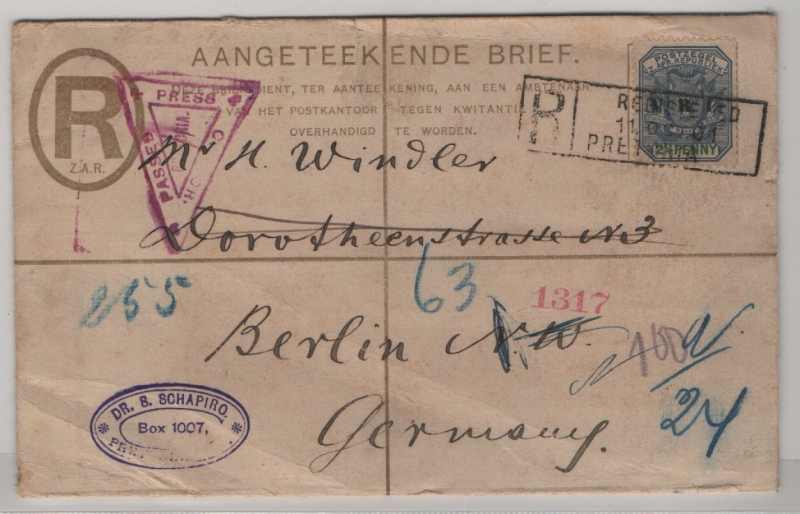 AANGETEEKENDE BRIEF.
R
Z.A.R.
DEZE BRIEF DIENT, TER AANTEEKENING, AAN EEN AMBTENAAR
VAN HET POSTKANTOOR TEGEN KWITANTIE
OVERHANDIGD TE WORDEN.
PASSED
PRESS
POSTZEGEL
Z. AFR. REPUBLIEK
2½ PENNY
R
REGISTERED
11 01
PRETORIA
Mr H. Windler
Dorotheenstrasse No 3
255
63
1317
Berlin N.W.
100
N
24
Germany.
DR. S. SCHAPIRO,
Box 1007,